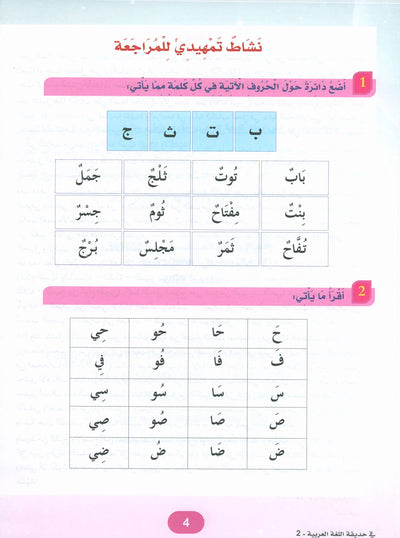 نَشَاطٌ تَمْهِيدِيٌّ لِلْمُرَاجَعَة
1 أَضَعُ دَائِرَةً حَوْلَ الْحُرُوفِ الْآتِيَةِ فِي كُلِّ كَلِمَة مِمَّا يَأْتِي:
ب ت ث ج
بَابٌ تُوتٌ ثَلْجٌ جَمَلٌ
بِنْتٌ مِفْتَاحٌ ثُومٌ جِسْرٌ
تُفَّاحٌ ثَمَرٌ مَجْلِسٌ بُرْجٌ
2 أَقْرَأُ مَا يَأْتِي:
حَ حَا حُو حِي
فَ فَا فُو فِي
سَ سَا سُو سِي
صَ صَا صُو صِي
ضَ ضَا ضُ ضِي
4
في حديقة اللغة العربية - 2